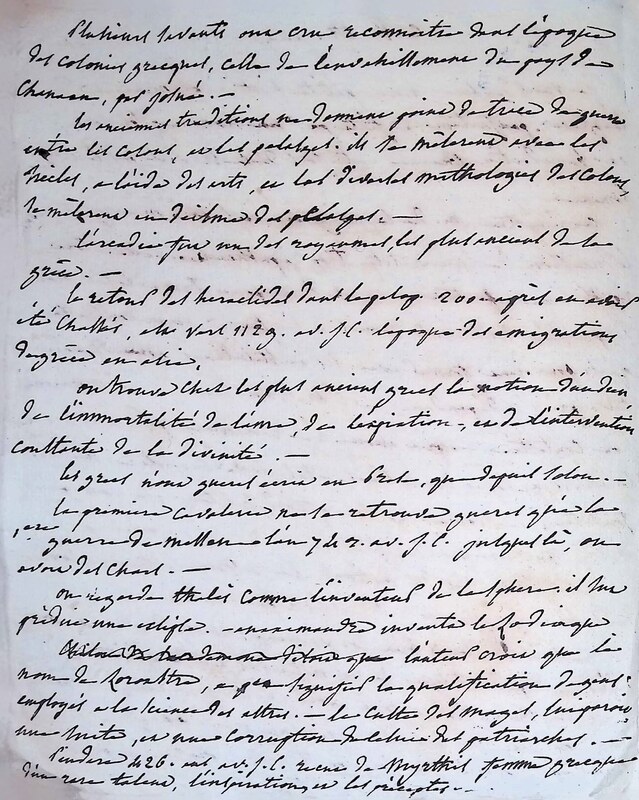 Plusieurs savants ont cru reconnoitre dans l'époque
des colonies grecques, celle de l'envahissement du pays de
Chanaan, par josué. —
les anciennes traditions ne donnent point de trace de guerre
entre les colons, et les pelasges. ils se mêlerent avec les
siecles, a l'aide des arts, et les diverses mythologies des colons,
se mêlerent au des pelasges. —
l'arcadie fut un des royaumes les plus ancien de la
grèce. —
le retour des heraclides dans le pelop. 200. après en avoir
été chassés, est vers 1129. av. J.C. époque des émigrations
de grèce en asie.
on trouve chez les plus anciens grecs la notion d'un dieu
de l'immortalité de l'ame, de l'expiation, et de l'intervention
constante de la divinité. —
les grecs n'ont guerres écrit en prose, que depuis solon. —
la premiere cavalerie ne se retrouve gueres qu'à la
1ere guerre de messene l'an 743. av. J.C. jusques là, on
avoit des chars. —
on regarde thalès comme l'inventeur de la sphere. il sut
prédire une eclipse. — anaximandre inventa le zodiaque
l'auteur croit que le
nom de Zoroastre, a pu signifier la qualification de gens
employés a la science des astres. — le culte des mages, lui paroit
une suite, et une corruption de celui des patriarches. —
Pindare 426. ans av. J.C. recut de Myrthis femme grecque
d'un rare talent, l'inspiration et les préceptes. —